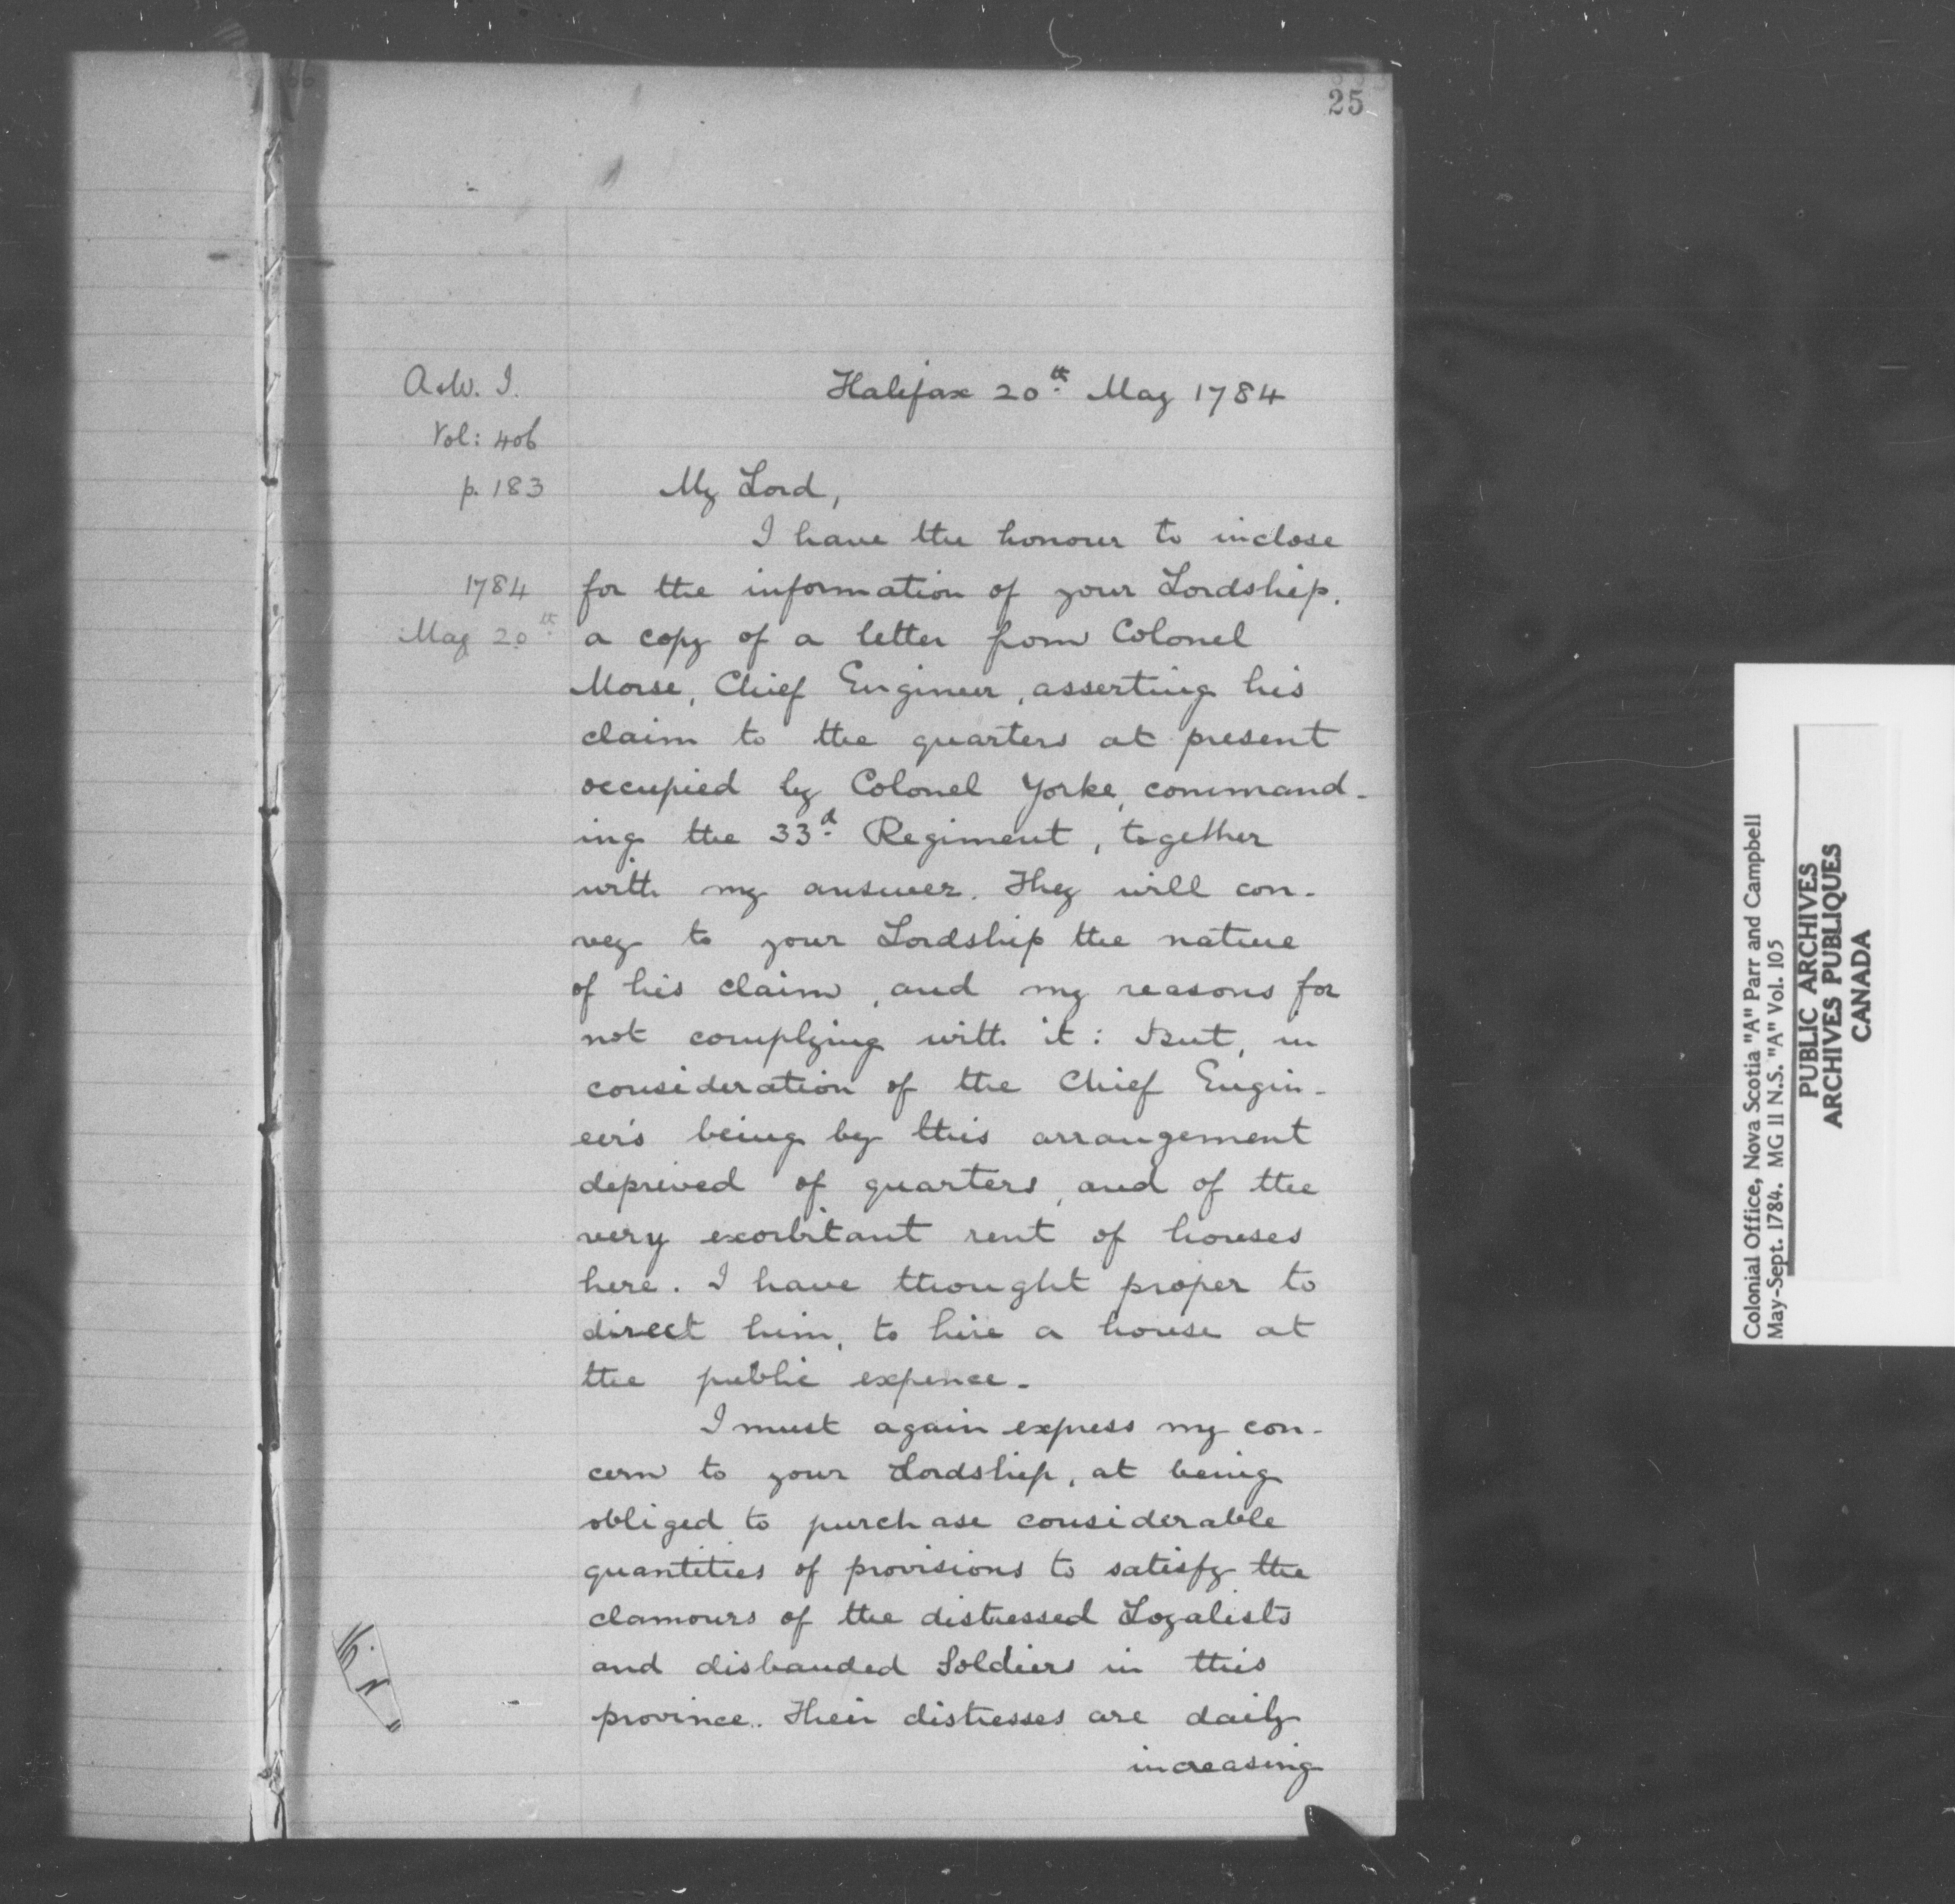 25
A. & W. I.
Vol: 406
p. 183
1784
May 20th
Halifax 20th May 1784
My Lord,
I have the honour to inclose
for the information of your Lordship,
a copy of a letter from Colonel
Morse, Chief Engineer, asserting his
claim to the quarters at present
occupied by Colonel Yorke, command-
ing the 33d Regiment, together
with my answer. They will con-
vey to your Lordship the nature
of his claim, and my reasons for
not complying with it: But, in
consideration of the Chief Engin-
eer's being by this arrangement
deprived of quarters, and of the
very exorbitant rent of houses
here. I have thought proper to
direct him, to hire a house at
the public expence.
I must again express my con-
cern to your Lordship, at being
obliged to purchase considerable
quantities of provisions to satisfy the
clamours of the distressed Loyalists
and disbanded Soldiers in this
province. Their distresses are daily
increasing
Colonial Office, Nova Scotia "A" Parr and Campbell
May-Sept. 1784. MG 11 N.S. "A" Vol. 105
PUBLIC ARCHIVES
ARCHIVES PUBLIQUES
CANADA